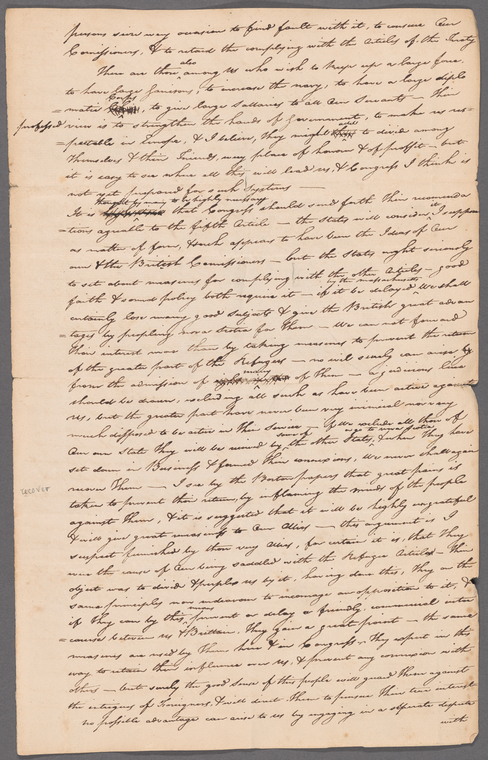 persons seize every occasion to find fault with it, to censure Our
Comissioners, & to retard the complying with the Articles of the Treaty
There are those also among us who wish to keep up a large force,
to have large Garrisons, to increase the navy, to have a large diplo
=matic Corps, to give large Sallaries to all Our Servants — their
professed view is to strengthen the hands of Government, to make us res=
=pectable in Europe, & I believe, they might add to divide among
themselves & their friends, every place of honour & of proffit — but
it is easy to see where all this will lead us, & Congress I think is
not yet prepared for such Systems —
It is thought by many to be highly necessary that Congress should send forth their recomenda
=tions agreable to the fifth Article — the States will consider it I suppose
as matter of form, & such appears to have been the Ideas of Our
own & the British Comissioners — but the States ought seriously
to set about measures for complying with the other Articles — good
faith & sound policy both require it — if it be delayed by the massachusetts We shall
certainly lose many good Subjects & give the British great advan
=tages by peopling nova Scotia for them — We can not forward
their interest more than by taking measures to prevent the return
of the great part of the Refugees — no evil scarcly can arise
from the admission of many of them — a generous line
should be drawn, excluding all such as have been active against
us, but the greater part have never been very criminal nor very
much disposed to be active in their Service — if We exclude all those of
Our own State they will be received by some of the other States, or go to nova Scotia & when they have
set down in Business & formed their connexions, We never shall again
recover
recover them — I see by the Boston papers that great pains is
taken to prevent their return, by inflaming the minds of the people
against them, & it is suggested that it will be highly ungrateful
& will give great uneasiness to Our Allies — this argument is I
suspect furnished by those very Allies, for certain it is, that they
were the cause of Our being saddled with the Refugee Articles — their
object was to divide & perplex us by it, having done this, they on the
same principles now endeavour to encourage an opposition to it, &
if they can by this means prevent or delay a friendly commercial inter
=course between us & Brittain, they gain a great point — the same
measures are used by them here & in Congress — they expect in this
way to retain their influence over us, & prevent any connexion with
others — but surely the good sense of the people will guard them against
the intrigues of Foreigners, & will direct them to pursue their true interest
no possible advantage can arise to us by engaging in a desperate dispute
with